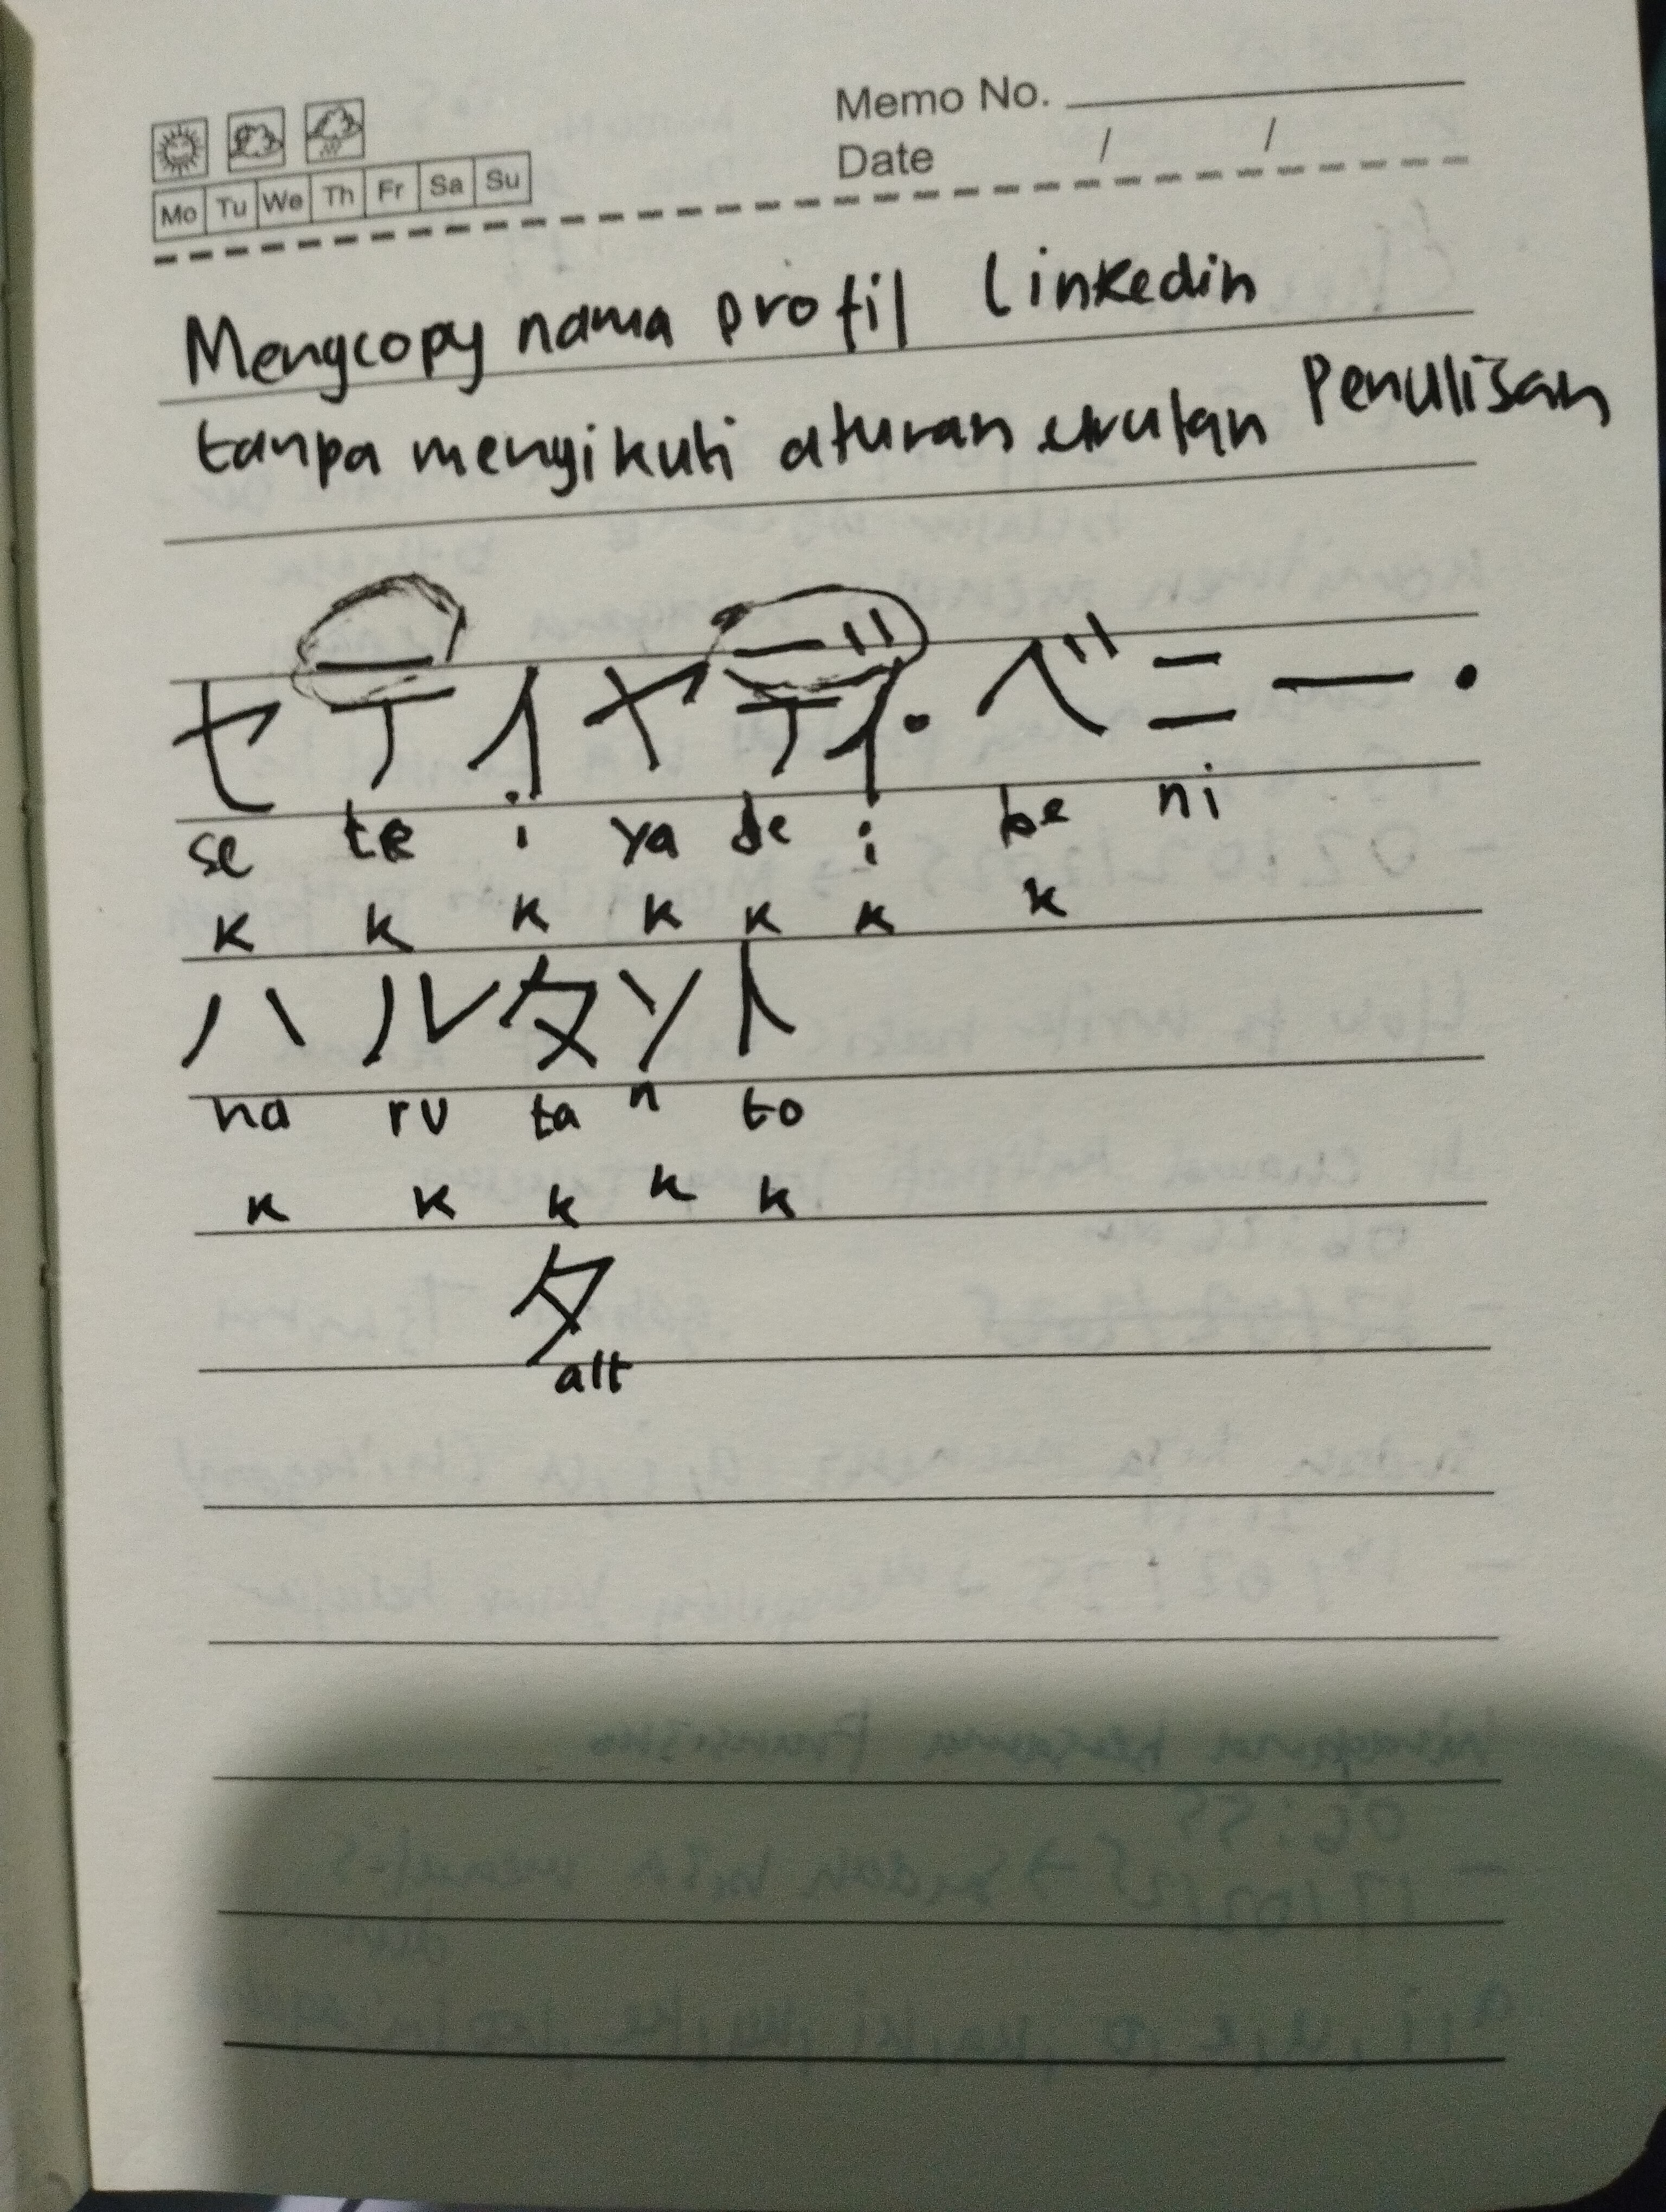 Memo No.
Date / /
Mo Tu We Th Fr Sa Su
Mengcopy nama profil linkedin
tanpa mengikuti aturan urutan Penulisan
セティヤディ・ベニー・
se te i ya de i be ni
k k k k k k k
ハルタント
ha ru ta n to
k k k k k
タ
alt